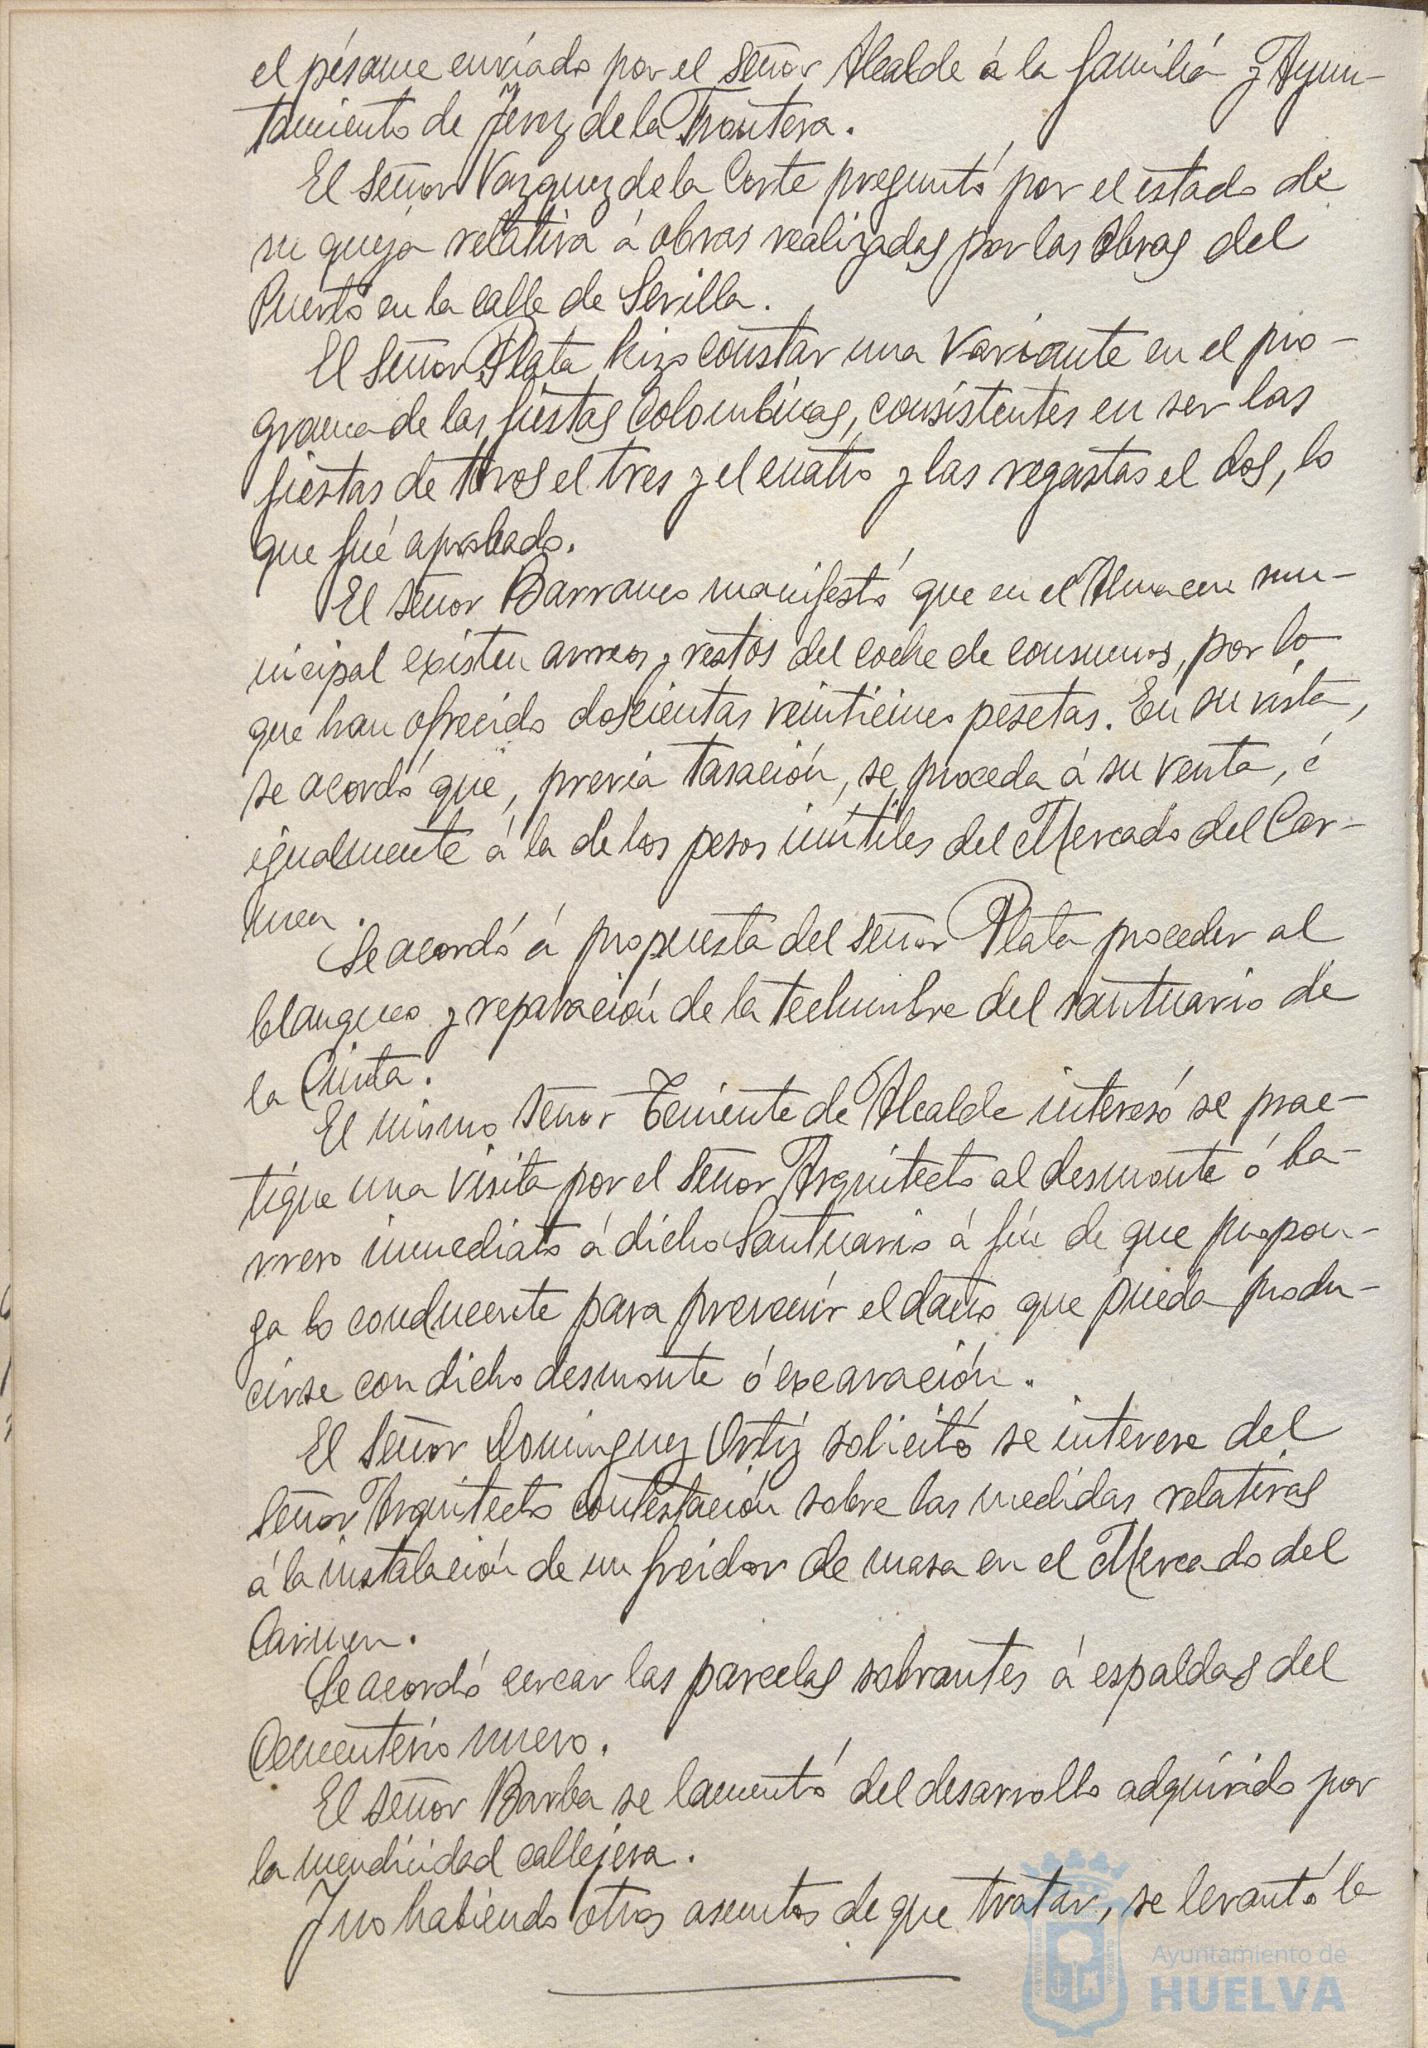 el pésame enviado por el Señor Alcalde á la familia y Ayun-
tamiento de Jerez de la Frontera.
El Señor Vazquez de la Corte preguntó por el estado de
su queja relativa á obras realizadas por las Obras del
Puerto en la calle de Sevilla.
El Señor Plata hizo constar una variante en el pro-
grama de las fiestas Colombinas, consistentes en ser las
fiestas de toros el tres y el cuatro y las regastas el dos, lo
que fué aprobado.
El Señor Barranco manifestó que en el Almacen mu-
nicipal existen arreos y restos del coche de consumos, por lo
que han ofrecido doscientas veinticinco pesetas. En su vista,
se acordó que, previa tasación, se proceda á su venta, é
igualmente á la de los pesos inútiles del Mercado del Car-
men.
Se acordó á propuesta del Señor Plata proceder al
blanqueo y reparación de la techumbre del santuario de
la Cinta.
El mismo Señor Teniente de Alcalde interesó se prac-
tique una visita por el Señor Arquitecto al desmonte ó ba-
rrero inmediato á dicho Santuario á fin de que propon-
ga lo conducente para prevenir el daño que pueda produ-
cirse con dicho desmonte ó excavación.
El Señor Dominguez Ortiz solicitó se interese del
Señor Arquitecto contestación sobre las medidas relativas
á la instalación de un freidor de masa en el Mercado del
Carmen.
Se acordó cercar las parcelas sobrantes á espaldas del
Cementerio nuevo.
El Señor Barba se lamentó del desarrollo adquirido por
la mendicidad callejera.
Y no habiendo otros asuntos de que tratar, se levantó la
Ayuntamiento de
HUELVA